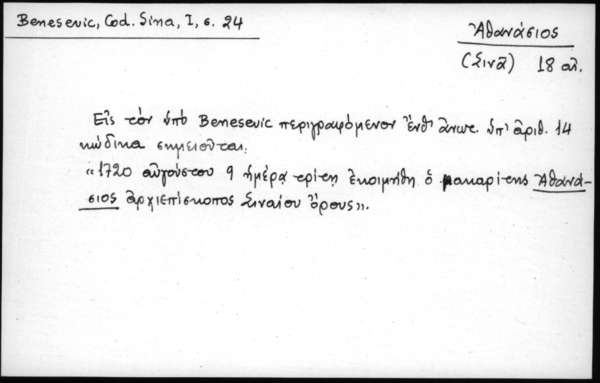 Benesevic, Cod. Sina, I, σ. 24
Ἀθανάσιος
(Σινᾶ) 18 αἰ.
Εἰς τὸν ὑπὸ Benesevic περιγραφόμενον ἔνθ' ἀνωτ. ὑπ' ἀριθ. 14
κώδικα σημειοῦται:
«1720 αὐγούστου 9 ἡμέρᾳ τρίτῃ ἐκοιμήθη ὁ μακαρίτης Ἀθανά-
σιος ἀρχιεπίσκοπος Σιναίου ὄρους».